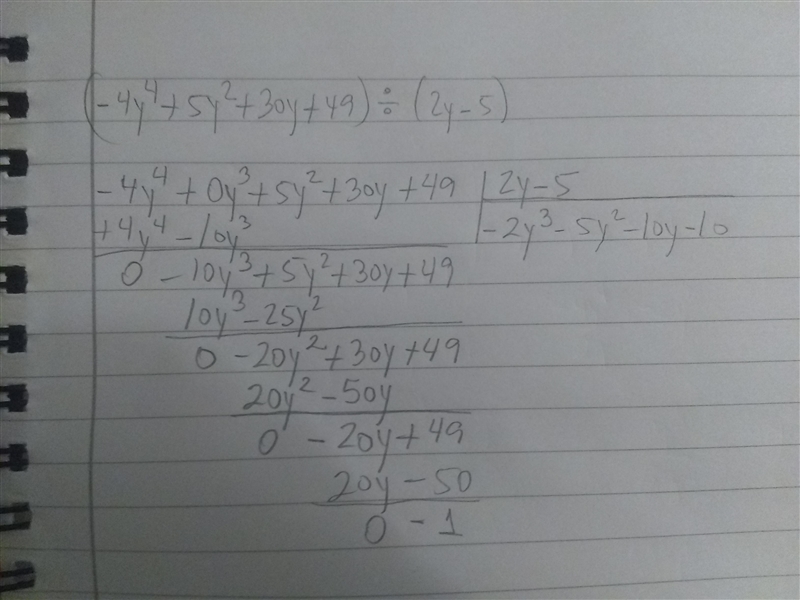 (-4y⁴+5y²+30y+49)÷(2y-5)
-4y⁴+0y³+5y²+30y+49 |2y-5
+4y⁴-10y³ |-2y³-5y²-10y-10
0-10y³+5y²+30y+49
10y³-25y²
0-20y²+30y+49
20y²-50y
0-20y+49
20y-50
0-1